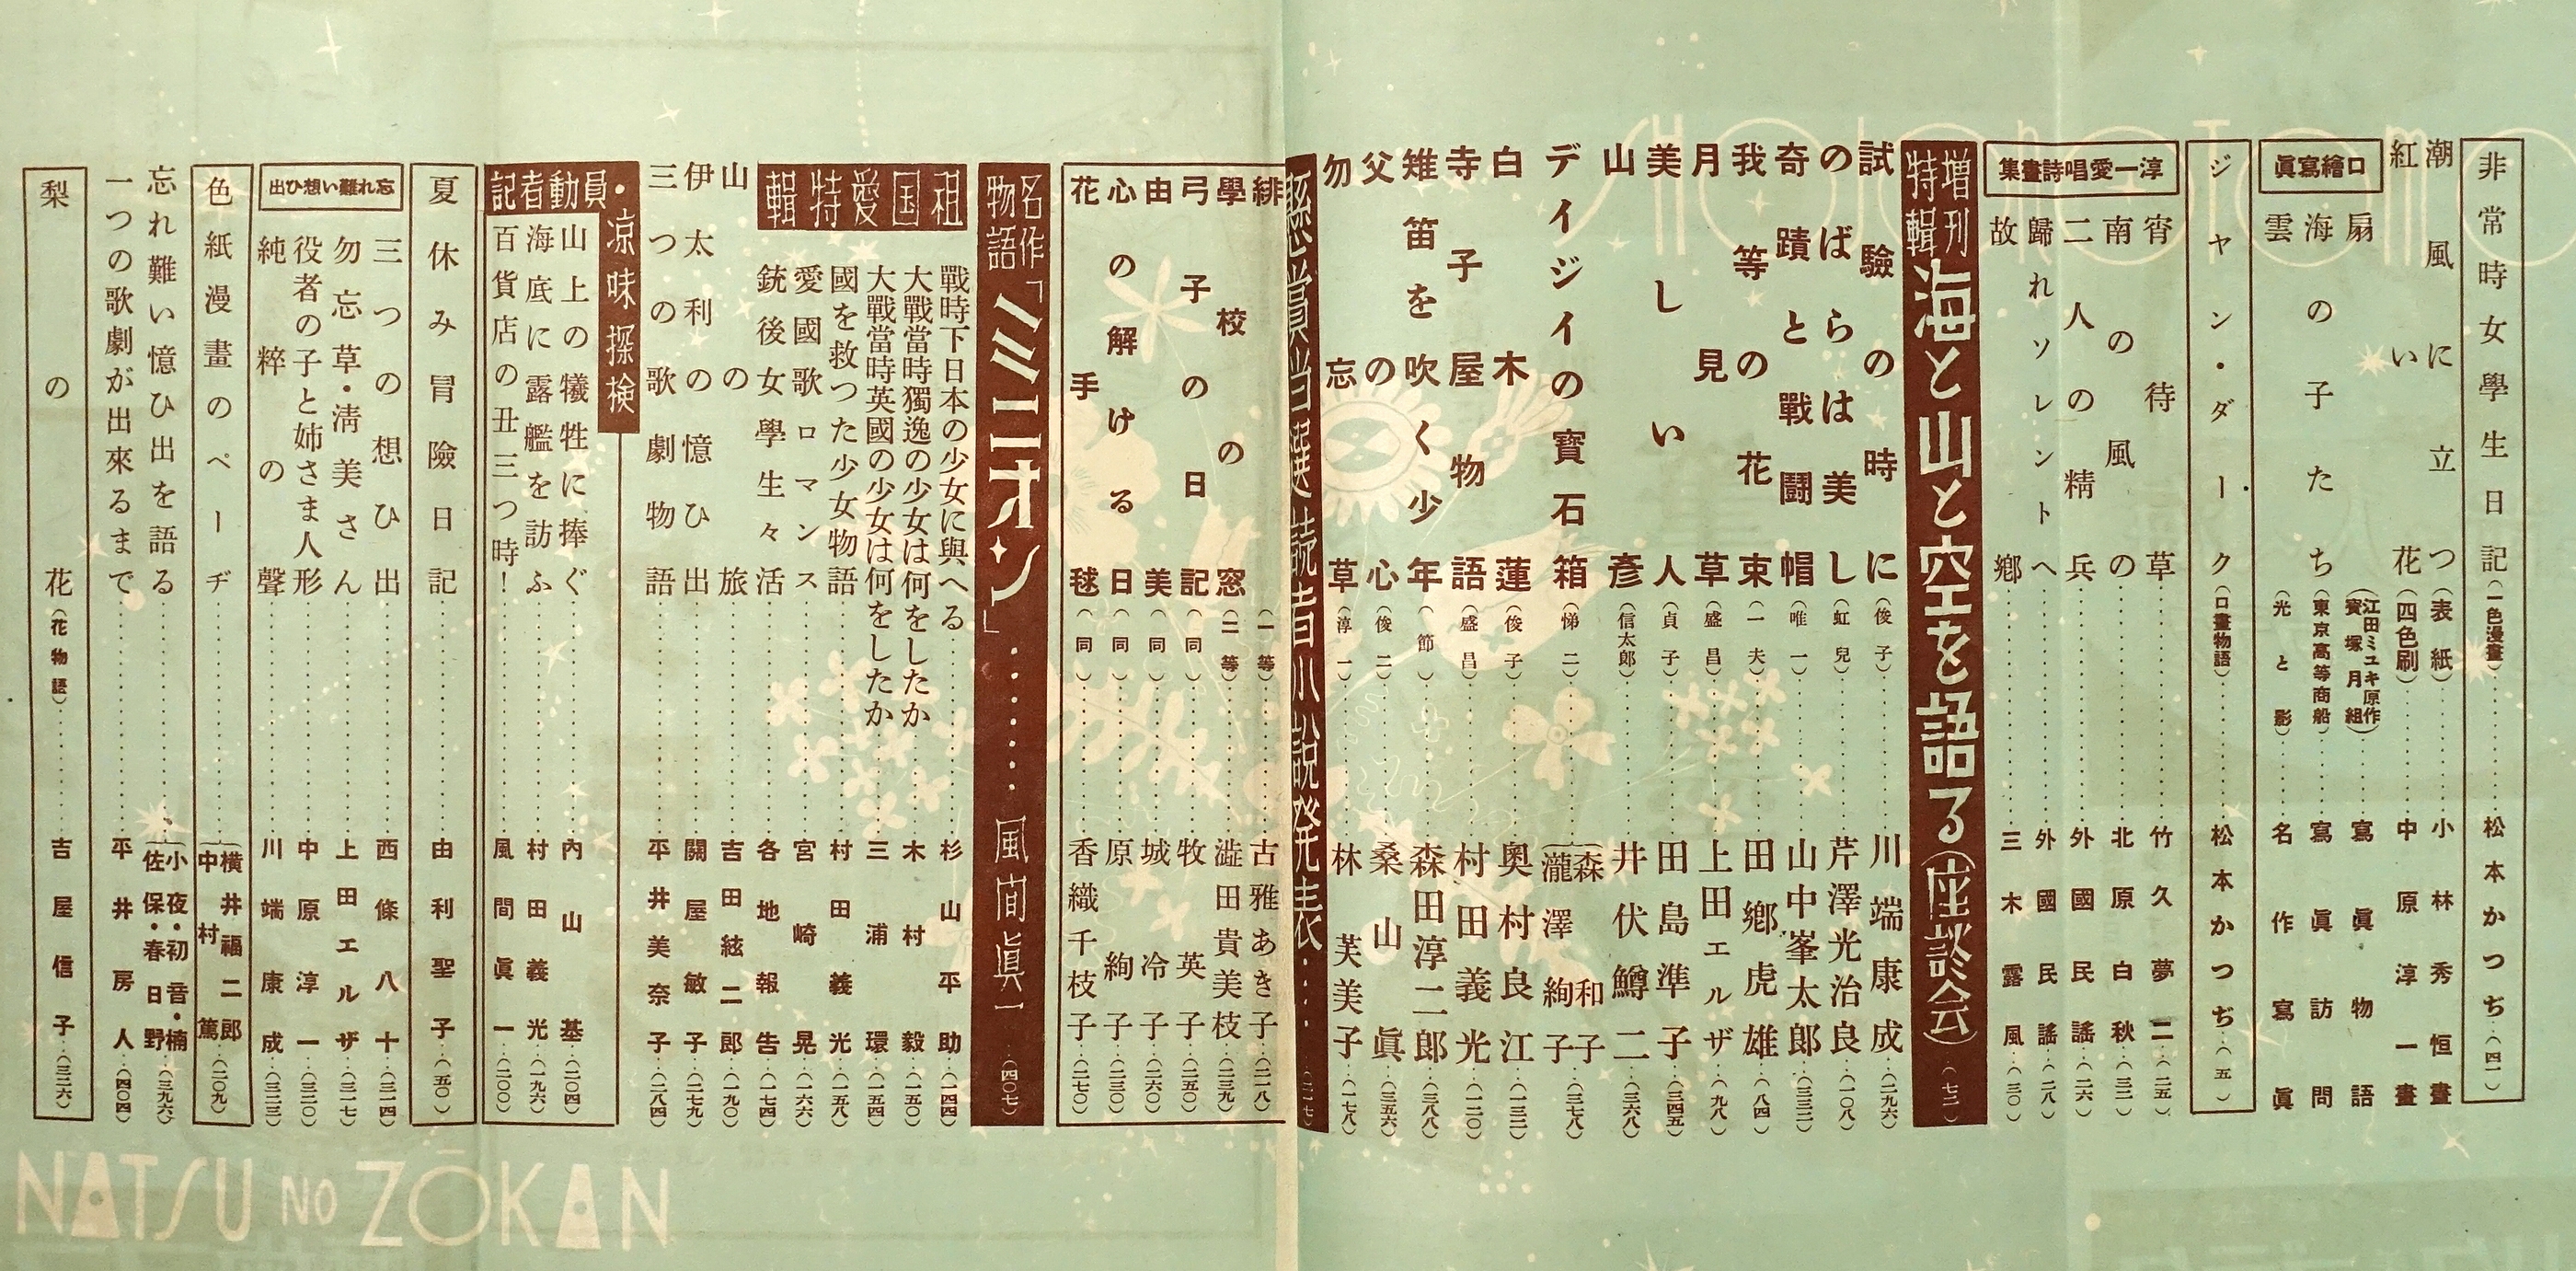 SHOJO NO TOMO
非常時女學生日記(一色漫畫)………松本かつぢ…(四一)
潮風に立つ(表紙)………小林秀恒畫
紅い花(四色刷)………中原淳一畫
口繪寫眞
扇(江田ミユキ原作 寳塚月組)………寫眞物語
海の子たち(東京高等商船)………寫眞訪問
雲(光と影)………名作寫眞
ジヤン・ダーク(口畫物語)………松本かつぢ…(五)
淳一愛唱詩畫集
宵待草………竹久夢二…(二五)
南の風の………北原白秋…(三二)
二人の精兵………外國民謠…(二六)
歸れソレントへ………外國民謠…(二八)
故鄕………三木露風…(三〇)
増刊特輯 海と山と空を語る(座談会)…(七三)
試驗の時に(俊子)………川端康成…(二九六)
のばらは美し(虹兒)………芹澤光治良…(一〇八)
奇蹟と戰鬪帽(唯一)………山中峯太郎…(三三二)
我等の花束(一夫)………田鄕虎雄…(八四)
月見草(盛昌)………上田エルザ…(九八)
美しい人(貞子)………田島準子…(三四五)
山彥(信太郎)………井伏鱒二…(三六八)
デイジイの寶石箱(悌二)………森和子 瀧澤絢子…(三七八)
白木蓮(俊子)………奥村良江…(一三二)
寺子屋物語(盛昌)………村田義光…(一二〇)
雉笛を吹く少年(節)………森田淳二郎…(三八八)
父の心(俊二)………桑山眞…(三五六)
勿忘草(淳一)………林芙美子…(一七八)
懸賞当選讀者小說発表………(二一七)
緋(一等)………古雅あき子…(二一八)
學校の窓(二等)………澁田貴美枝…(二三九)
弓子の日記(同)………牧英子…(二五〇)
由美(同)………城冷子…(二六〇)
心の解ける日(同)………原絢子…(二三〇)
花手毬(同)………香織千枝子…(二七〇)
名作物語「ミニヨン」………風間眞一…(四〇七)
祖国愛特輯
戰時下日本の少女に與へる………杉山平助…(一四四)
大戰當時獨逸の少女は何をしたか………木村毅…(一五〇)
大戰當時英國の少女は何をしたか………三浦環…(一五四)
國を救つた少女物語………村田義光…(一五八)
愛國歌ロマンス………宮崎晃…(一六六)
銃後女學生々活………各地報告…(一七四)
山の旅………吉田絃二郎…(一九〇)
伊太利の憶ひ出………關屋敏子…(二七九)
三つの歌劇物語………平井美奈子…(二八四)
記者動員・凉味探検
山上の犠牲に捧ぐ………內山基…(二〇四)
海底に露艦を訪ふ………村田義光…(一九六)
百貨店の丑三つ時!………風間眞一…(二〇〇)
夏休み冒險日記………由利聖子…(五〇)
忘れ難い想ひ出
三つの想ひ出………西條八十…(三一四)
勿忘草・淸美さん………上田エルザ…(三一七)
役者の子と姉さま人形………中原淳一…(三二〇)
純粹の聲………川端康成…(三二三)
色紙漫畫のペーヂ………横井福二郎 中村篤…(二〇九)
忘れ難い憶ひ出を語る………小夜・初音・楠 佐保・春日野…(三九六)
一つの歌劇が出來るまで………平井房人…(四〇四)
梨の花(花物語)………吉屋信子…(三二六)
NATSU NO ZŌKAN